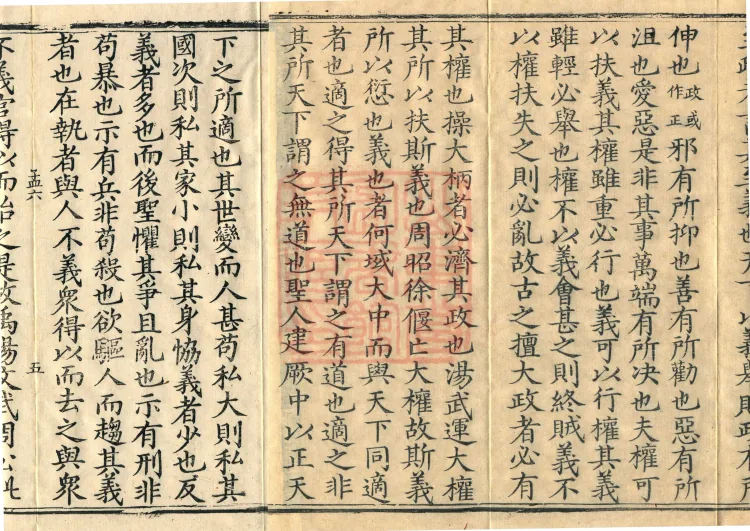 伸也政或作正邪有所抑也善有所勸也惡有所
沮也愛惡是非其事萬端有所决也夫權可
以扶義其權雖重必行也義可以行權其義
雖輕必舉也權不以義會甚之則終賊義不
以權扶失之則必亂故古之擅大政者必有
其權也操大柄者必濟其政也湯武運大權
其所以扶斯義也周昭徐偃亡大權故斯義
所以愆也義也者何域大中而與天下同適
者也適之得其所天下謂之有道也適之非
其所天下謂之無道也聖人建厥中以正天
下之所適也其世變而人甚苟私大則私其
國次則私其家小則私其身恊義者少也反
義者多也而後聖懼其爭且亂也示有刑非
苟暴也示有兵非苟殺也欲驅人而趨其義
者也在執者與人不義衆得以而去之與衆
孟六 五
不義官得以而治之是故禹湯文武周公